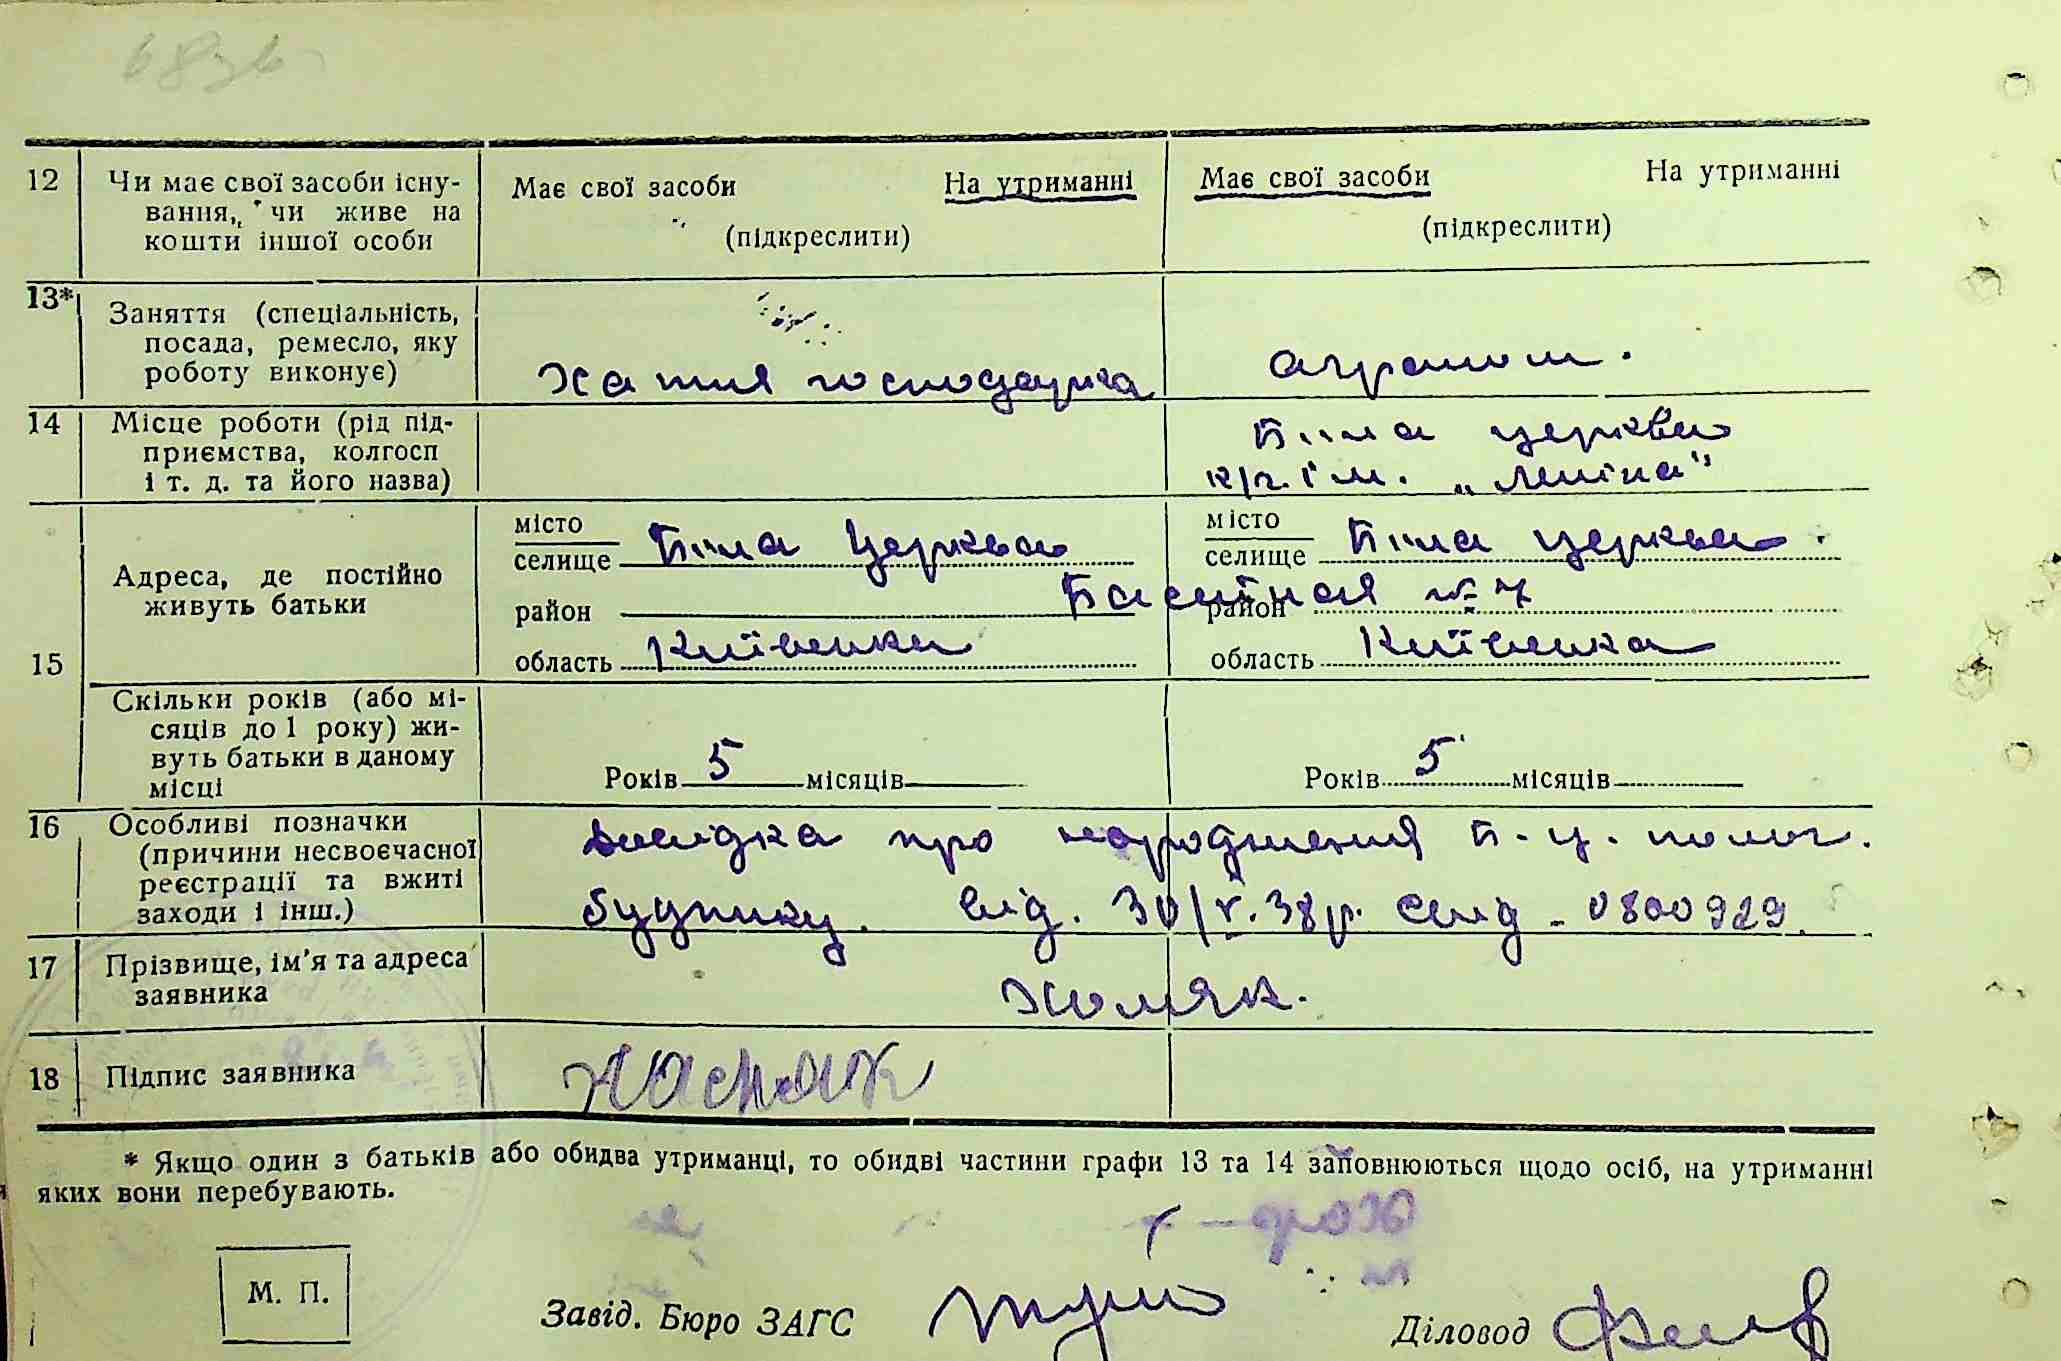 12 Чи має свої засоби існу- Має свої засоби На утриманні Має свої засоби На утриманні
вання, чи живе на
кошти іншої особи (підкреслити) (підкреслити)
13* Заняття (спеціальність,
посада, ремесло, яку
роботу виконує) Хатня господарка агроном.
14 Місце роботи (рід під- Біла церква
приємства, колгосп
і т. д. та його назва) к/г. ім. „Леніна"
15 Адреса, де постійно
живуть батьки
місто
селище Біла Церква
місто
селище Біла церква
район район Басейная № 7
область Київська область Київська
Скільки років (або мі-
сяців до 1 року) жи-
вуть батьки в даному
місці Років 5 місяців Років 5 місяців
16 Особливі позначки Довідка про народження Б-Ц. полог.
(причини несвоєчасної
реєстрації та вжиті
заходи і інш.) будинку. від. 30/V.38р. свід - 0800929.
17 Прізвище, ім'я та адреса
заявника Хомяк.
18 Підпис заявника
* Якщо один з батьків або обидва утриманці, то обидві частини графи 13 та 14 заповнюються щодо осіб, на утриманні
яких вони перебувають.
М. П.
Завід. Бюро ЗАГС Діловод